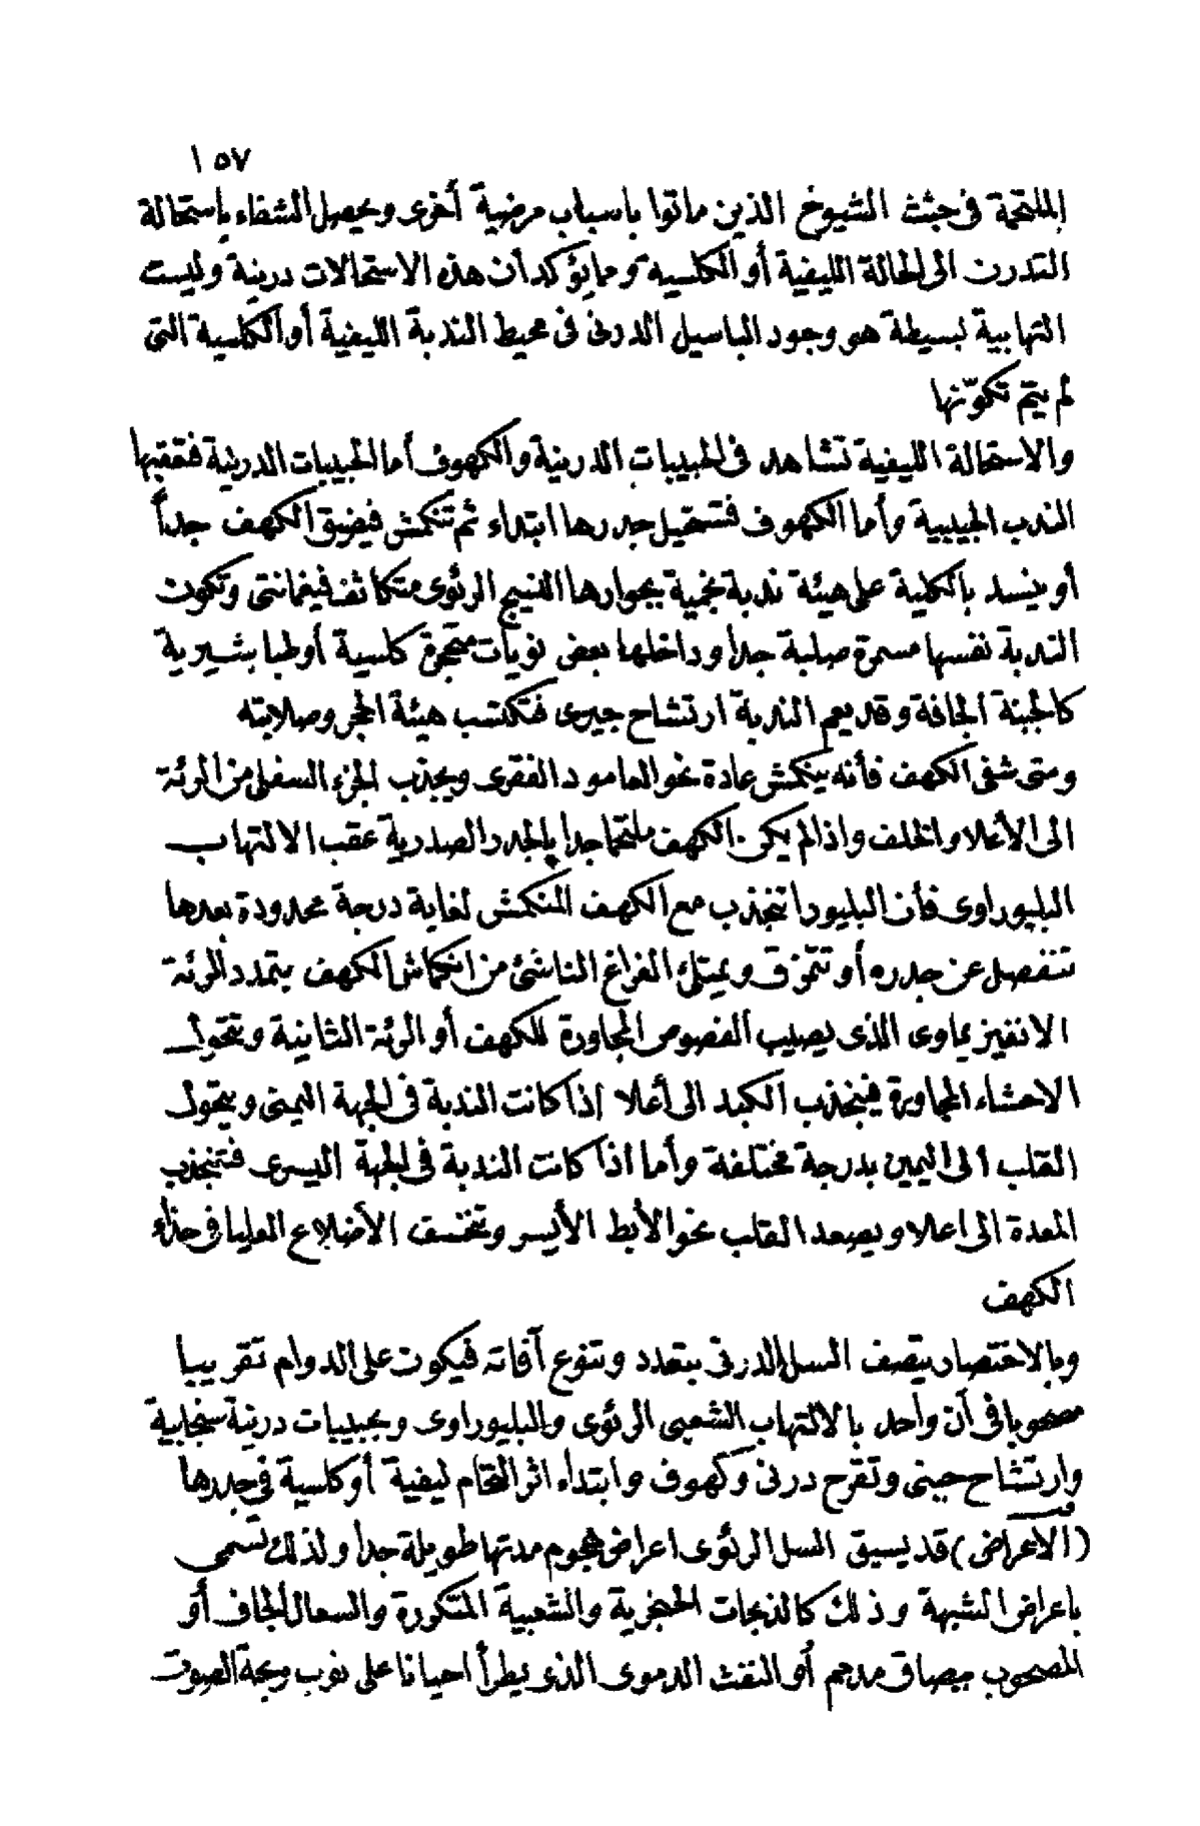 ١٥٧
الملتحمة فى جثث الشيوخ الذين ماتوا باسباب مرضية أخرى ويحصل الشفاء باستحالة
التدرن الى الحالة الليفية أو الكلسية ومما يؤكد أن هذه الاستحالات درنية وليست
التهابية بسيطة هو وجود الباسيل الدرنى فى محيط الندبة الليفية أو الكلسية التى
لم يتم تكوّنها
والاستحالة الليفية تشاهد فى الحبيبات الدرنية والكهوف أما الحبيبات الدرنية فتعقبها
الندب الحبيبية وأما الكهوف فتستحيل جدرها ابتداء ثم تنكمش فيضيق الكهف جداً
أو ينسد بالكلية على هيئة ندبة نجمية بجوارها النسيج الرئوى متكاثف فيمانتى وتكون
الندبة نفسها مسمرة صلبة جدا وداخلها بعض نويات متحجرة كلسية أو طباشيرية
كالجبنة الجافة وقد يعم الندبة ارتشاح جيرى فتكتسب هيئة الحجر وصلابته
ومتى شفى الكهف فأنه ينكمش عادة نحو العامود الفقرى ويجذب الجزء السفلى من الرئة
الى الأعلا والخلف واذا لم يكن الكهف ملتحما جدا بالجدر الصدرية عقب الالتهاب
البليوراوى فأن البليورا تنجذب مع الكهف المنكمش لغاية درجة محدودة بعدها
تنفصل عن جدره أو تتمزق ويمتلئ الفراغ الناشئ من انكماش الكهف بتمدد الرئة
الانفيزيماوى الذى يصيب الفصوص المجاورة للكهف أو الرئة الثانية وتتحول
الاحشاء المجاورة فينجذب الكبد الى أعلا إذا كانت الندبة فى الجهة اليمنى ويتحول
القلب الى اليمين بدرجة مختلفة وأما اذا كانت الندبة فى الجهة اليسرى فتنجذب
المعدة الى اعلا ويصعد القلب نحو الأبط الأيسر وتنخسف الأضلاع العليا فى حذاء
الكهف
وبالاختصار يتصف السل الدرنى بتعدد وتنوع آفاته فيكون على الدوام تقريبا
مصحوبا فى آن واحد بالالتهاب الشعبى الرئوى والبليوراوى وبحبيبات درنية سنجابية
وارتشاح جبنى وتقرح درنى وكهوف وابتداء اثر التحام ليفية أو كلسية فى جدرها
(الأعراض) قد يسبق السل الرئوى اعراض هجوم مدتها طويلة جدا ولذلك تسمى
باعراض الشبهة وذلك كالذبحات الحنجرية والشعبية المتكررة والسعال الجاف أو
المصحوب ببصاق مدمم أو النفث الدموى الذى يطرأ احيانا على نوب وبحة الصوت